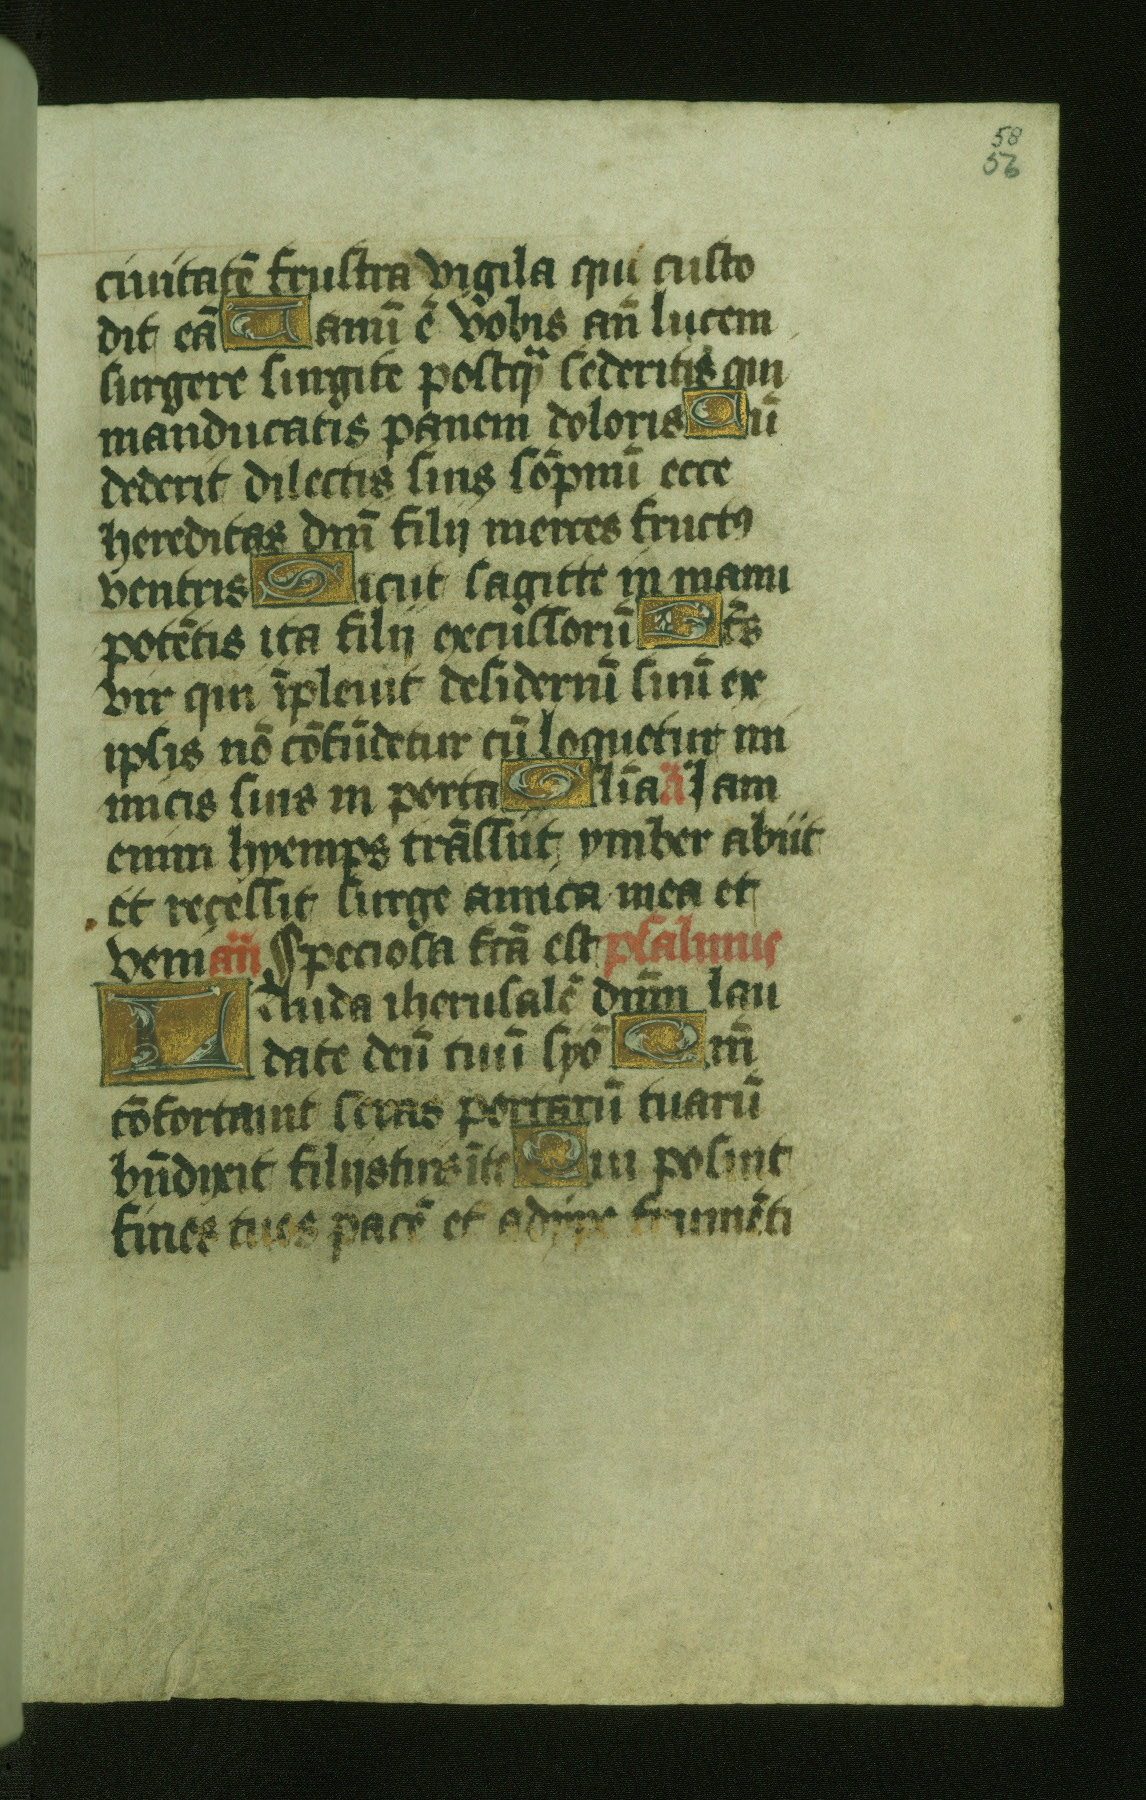 58
56
ciuitatē frustra vigila qui custo
dit eā Uanū ē vobis an̄ lucem
surgere surgite postq̄ sederitis qui
manducatis panem doloris Cū
dederit dilectis suis sōpnū ecce
hereditas dm̄ filij merces fructꝰ
ventris Sicut sagitte in manu
potētis ita filij excussorū Bt̄s
vir qui īpleuit desideriū suū ex
ipsis nō cōfūdetur cū loquetur ini
micis suis in porta Gl̄ia ā Jam
enim hyemps trāssiit ymber abiit
et recessit surge amica mea et
veni an̄ Speciosa fcā est psalmus
Lauda iherusalē dn̄m lau
date deū tuū syō Qm̄
cōfortauit seras portarū tuarū
bn̄dixit filijs tuis īte Qui posuit
fines tuos pacē et adipe frumēti